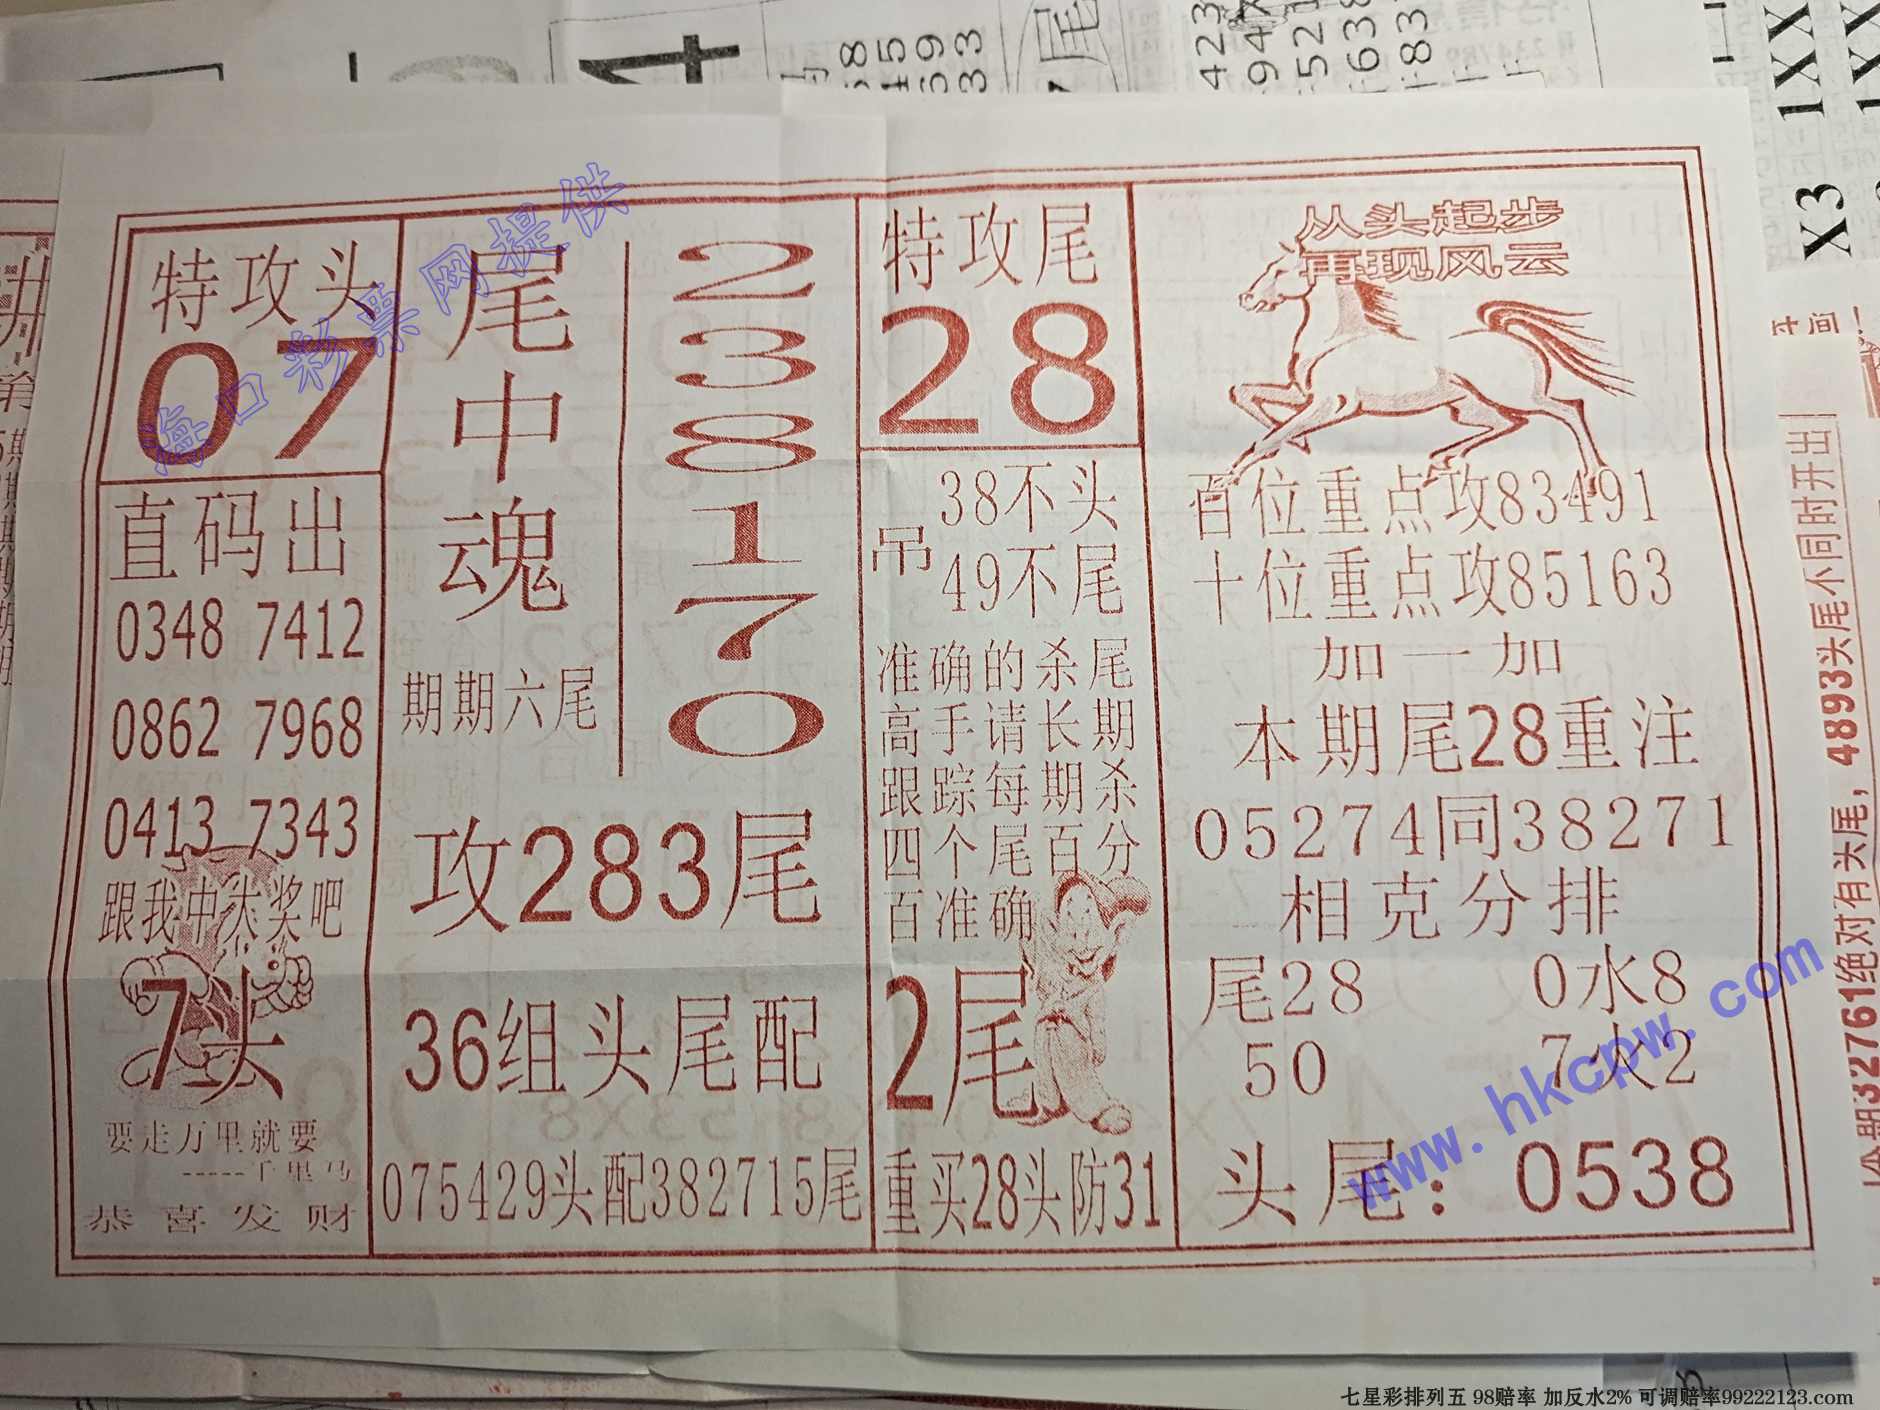 特攻头
07
直码出
0348 7412
0862 7968
0413 7343
跟我中大奖吧
7头
要走万里就要
-----千里马
恭喜发财
尾中魂
期期六尾
238170
攻283尾
36组头尾配
075429头配382715尾
特攻尾
28
吊
38不头
49不尾
准确的杀尾
高手请长期
跟踪每期杀
四个尾百分
百准确
2尾
重买28头防31
从头起步
再现风云
百位重点攻83491
十位重点攻85163
加一加
本期尾28重注
05274同38271
相克分排
尾28 0水8
50 7火2
头尾：0538
海口彩票网提供
www.hkcpw.com
4893头尾不同时开出
32761绝对有头尾，
1XX
X3
七星彩排列五 98赔率 加反水2% 可调赔率99222123.com